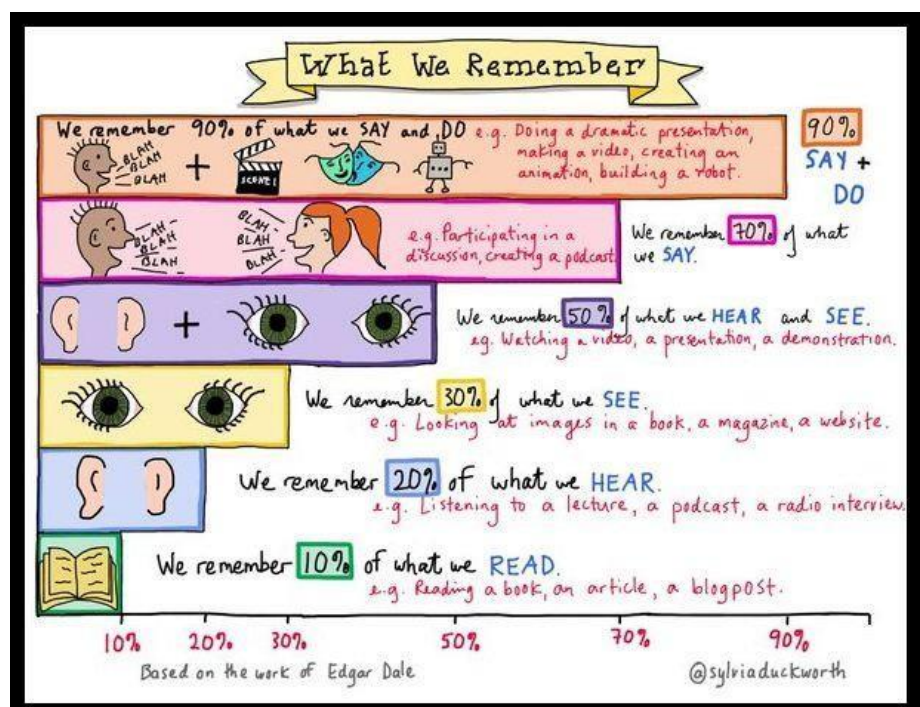 What We Remember
We remember 90% of what we SAY and DO e.g. Doing a dramatic presentation,
making a video, creating an
animation, building a robot.
BLAH
BLAH
BLAH
SCENE 1
90%
SAY +
DO
BLAH
BLAH
BLAH
BLAH
BLAH
BLAH
BLAH
e.g. Participating in a
discussion, creating a podcast
We remember 70% of what
we SAY.
We remember 50% of what we HEAR and SEE.
eg. Watching a video, a presentation, a demonstration.
We remember 30% of what we SEE.
e.g. Looking at images in a book, a magazine, a website.
We remember 20% of what we HEAR.
e.g. Listening to a lecture, a podcast, a radio interview.
We remember 10% of what we READ.
e.g. Reading a book, an article, a blogpost.
10% 20% 30% 50% 70% 90%
Based on the work of Edgar Dale
@sylviaduckworth